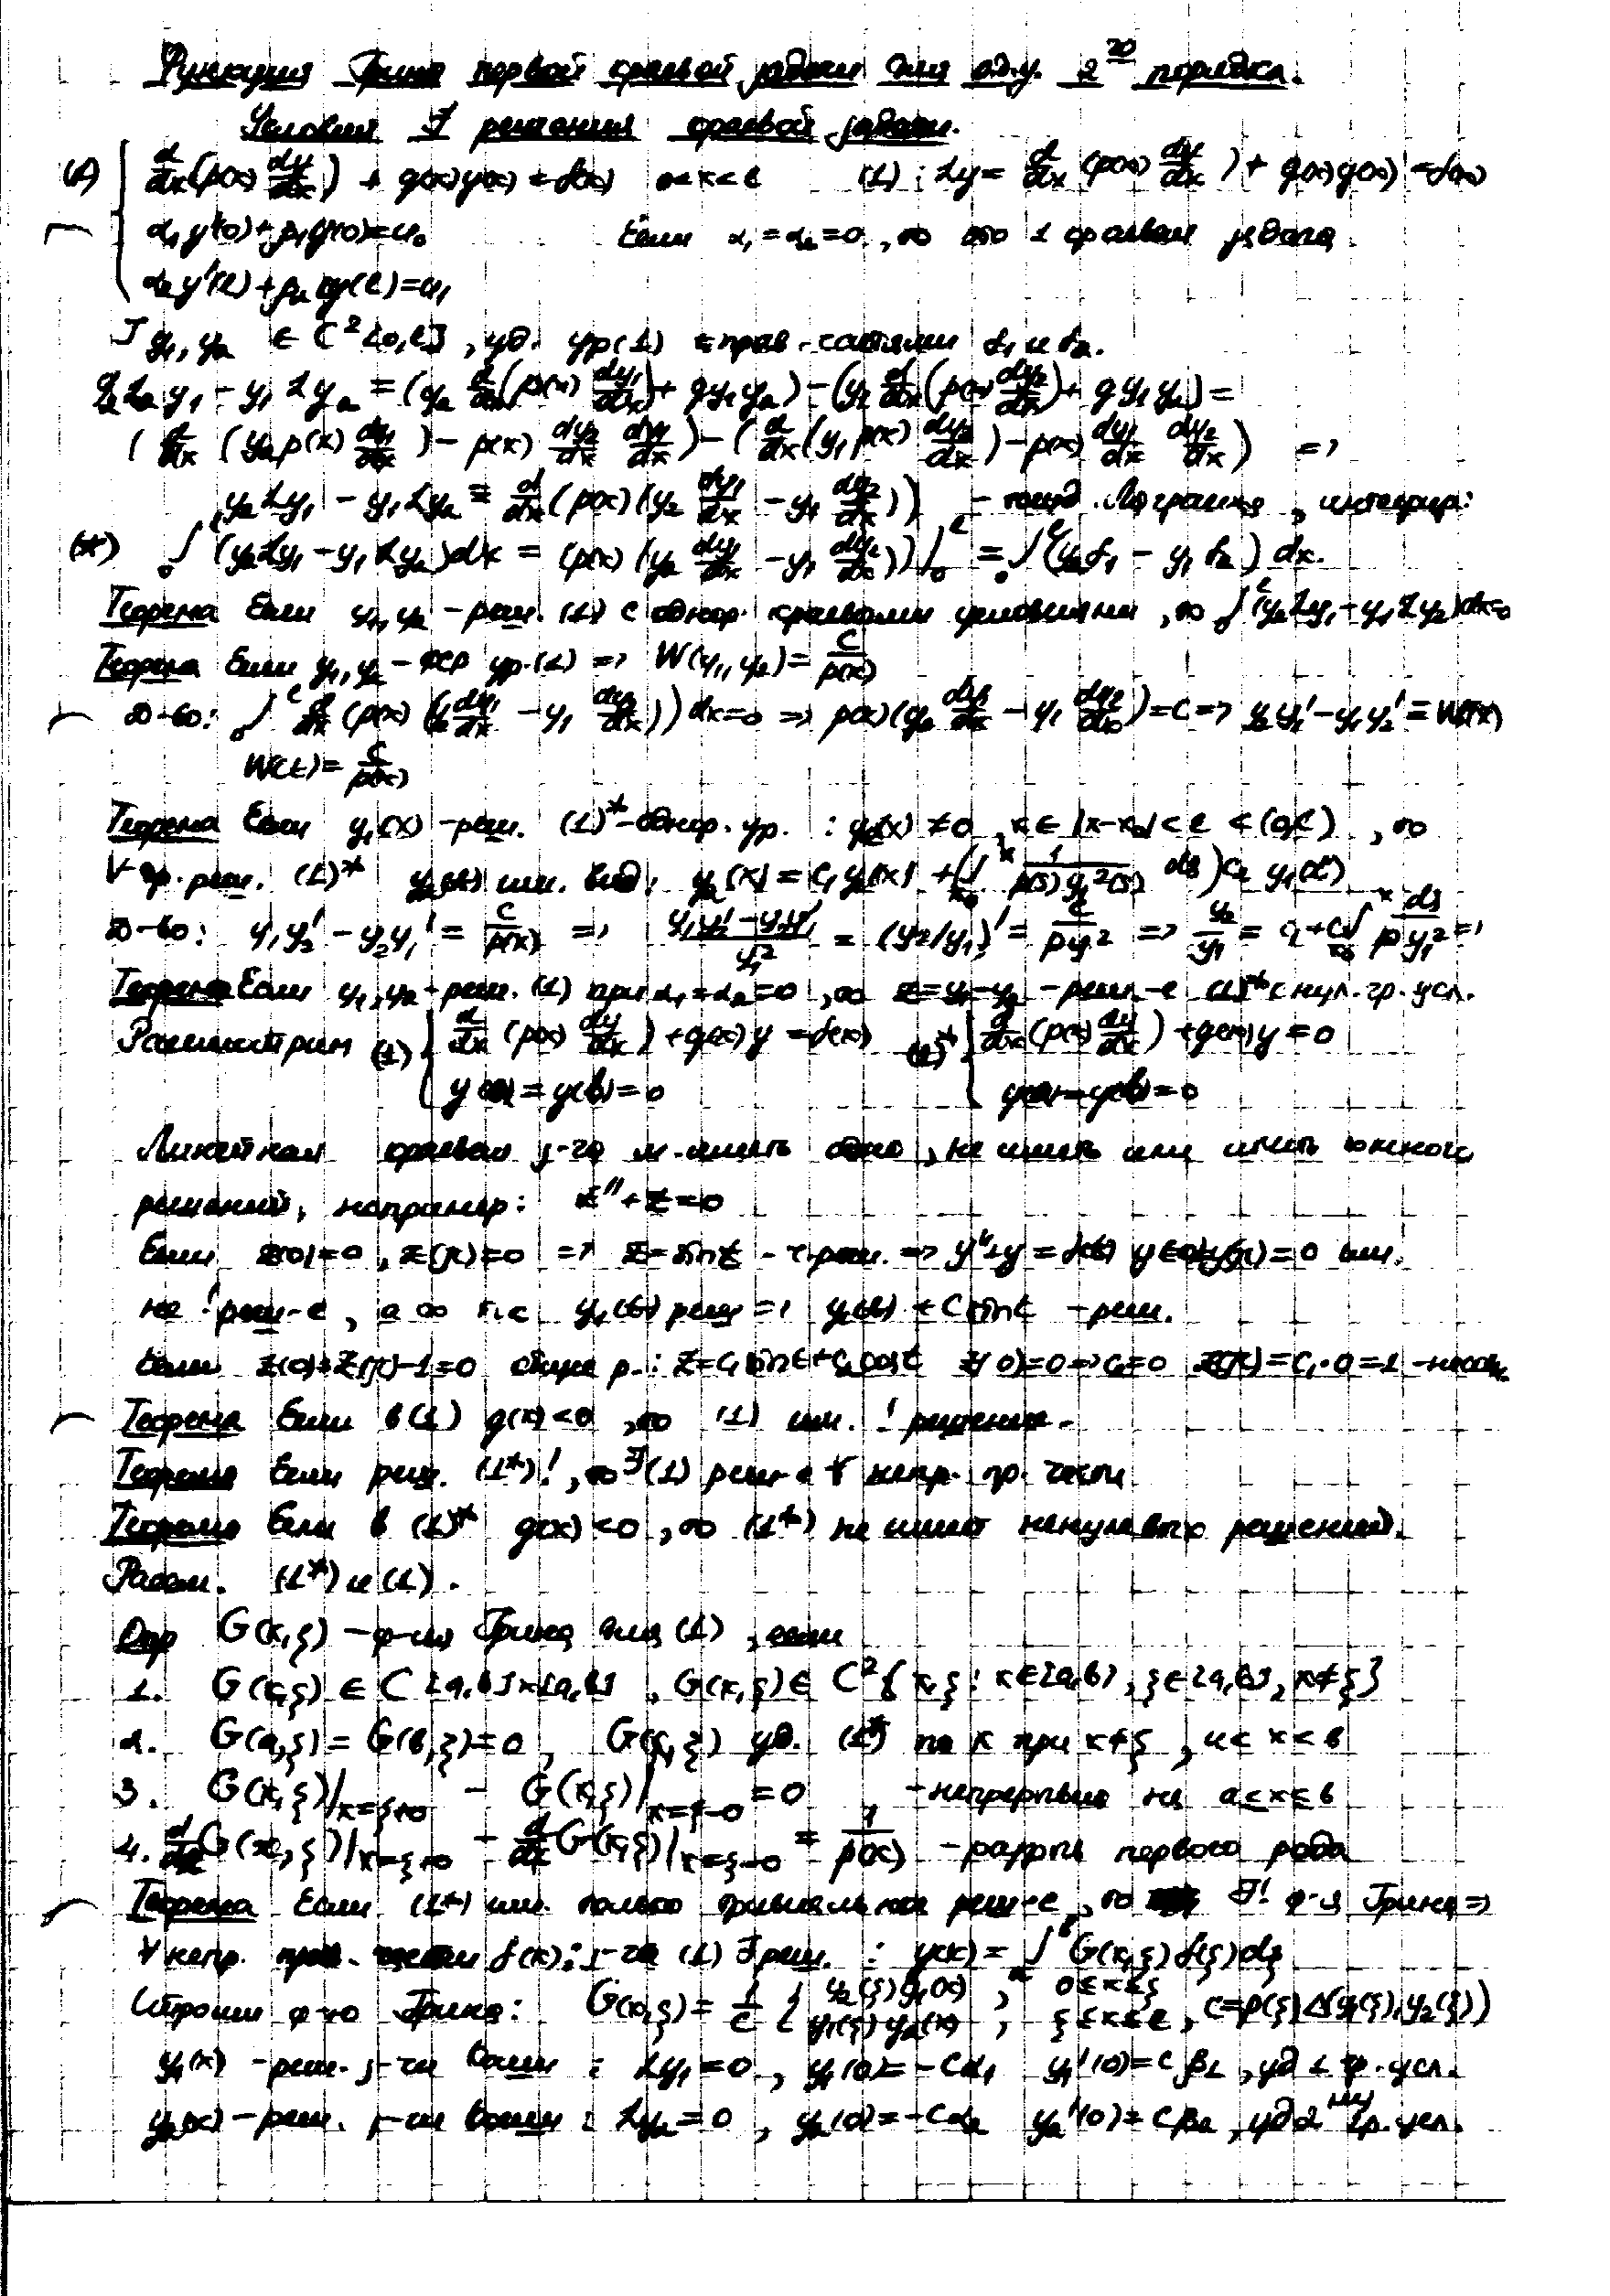 Функция Грина первой краевой задачи для о.д.у. 2го порядка.
Условия ∃ решения краевой задачи.
(1) { d/dx(p(x) dy/dx) + q(x)y(x) = f(x) 0<x<l (1): Ly = d/dx (p(x) dy/dx) + q(x)y(x) = f(x)
α₁y'(0)+β₁y(0)=u₀ Если α₁=α₂=0, то это 1 краевая задача.
α₂y'(l)+β₂y(l)=u₁
∃ y₁, y₂ ∈ C²[0,l], уд. ур(1) с прав. частями f₁ и f₂.
y₂Ly₁ - y₁Ly₂ = (y₂ d/dx(p(x) dy₁/dx) + qy₁y₂) - (y₁ d/dx(p(x) dy₂/dx) + qy₁y₂) =
( d/dx (y₂p(x) dy₁/dx) - p(x) dy₂/dx dy₁/dx) - ( d/dx (y₁p(x) dy₂/dx) - p(x) dy₁/dx dy₂/dx) =>
y₂Ly₁ - y₁Ly₂ = d/dx (p(x)(y₂ dy₁/dx - y₁ dy₂/dx)) - тожд. Лагранжа, интегрир:
(*) ∫₀ˡ (y₂Ly₁ - y₁Ly₂)dx = (p(x)(y₂ dy₁/dx - y₁ dy₂/dx))|₀ˡ = ∫₀ˡ (y₂f₁ - y₁f₂) dx.
Теорема Если y₁, y₂ - реш. (1) с однор. краевыми условиями, то ∫₀ˡ (y₂Ly₁ - y₁Ly₂)dx=0
Теорема Если y₁, y₂ - ФСР ур.(1) => W(y₁, y₂) = C/p(x)
Д-во: ∫₀ˡ d/dx (p(x)(y₂ dy₁/dx - y₁ dy₂/dx)) dx=0 => p(x)(y₂ dy₁/dx - y₁ dy₂/dx)=C => y₂y₁' - y₁y₂' = W(x)
W(t) = C/p(x)
Теорема Если y₁(x) - реш. (1)* - однор. ур. : y₁(x) ≠ 0, x ∈ |x-x₀| < l < (0,l), то
∀ др. реш. (1)* y₂(x) им. вид: y₂(x) = C₁y₁(x) + (∫ₓ₀ˣ 1/(p(s)y₁²(s)) ds)C₂ y₁(x)
Д-во: y₁y₂' - y₂y₁' = C/p(x) => (y₁y₂' - y₂y₁')/y₁² = (y₂/y₁)' = C/(py₁²) => y₂/y₁ = C₁+C₂∫ₓ₀ˣ ds/(py₁²) =>
Теорема Если y₁, y₂ - реш. (1) при α₁=α₂=0, то z=y₁-y₂ - реш-е (1)* с нул. гр. усл.
Рассмотрим (1) { d/dx (p(x) dy/dx) + q(x)y = f(x) (1)* { d/dx (p(x) dy/dx) + q(x)y = 0
y(a) = y(b) = 0 y(a) = y(b) = 0
Линейная краевая з-ча м. иметь одно, не иметь или иметь ∞ много
решений, например: z''+z=0
Если z(0)=0, z(π)=0 => z=sint - реш. => y''+y=f(t) y(0)=y(π)=0 им.
не ! реш-е, а ∞ т.к. y₁(t) реш => y₁(t) + C sint - реш.
Если z(0)=z(π)-1=0 общее р.: z=C₁sint+C₂cost z(0)=0 => C₂=0 z(π)=C₁·0=1
Теорема Если в (1) q(x)<0, то (1) им. ! решение.
Теорема Если реш. (1*)!, то ∃ (1) реш-е ∀ непр. пр. части
Теорема Если в (1)* q(x)<0, то (1*) не имеет ненулевого решений.
Рассм. (1*) и (1).
Опр G(x,ξ) - ф-ия Грина для (1), если
1. G(x,ξ) ∈ C [a,b]×[a,b], G(x,ξ) ∈ C²{x,ξ: x∈[a,b], ξ∈[a,b], x≠ξ}
2. G(a,ξ) = G(b,ξ)=0, G(x,ξ) уд. (1*) по x при x≠ξ, a<x<b
3. G(x,ξ)|x=ξ+0 - G(x,ξ)|x=ξ-0 = 0 - непрерывна на a≤x≤b
4. d/dx G(x,ξ)|x=ξ+0 - d/dx G(x,ξ)|x=ξ-0 = 1/p(x) - разрыв первого рода
Теорема Если (1*) им. только тривиальное реш-е, то ∃! ф-я Грина =>
∀ непр. f(x): з-ча (1) ∃ реш. : y(x) = ∫ₐᵇ G(x,ξ)f(ξ)dξ
Строим ф-ю Грина: G(x,ξ) = 1/c { y₂(ξ)y₁(x), 0≤x≤ξ ; y₁(ξ)y₂(x), ξ≤x≤l, c=p(ξ)Δ(y₁(ξ),y₂(ξ))
y₁(x) - реш. з-чи Коши : Ly₁=0, y₁(0)=-Cα₁ y₁'(0)=Cβ₁, уд 1 гр. усл.
y₂(x) - реш. з-чи Коши : Ly₂=0, y₂(0)=-Cα₂ y₂'(0)=Cβ₂, уд 2му гр. усл.